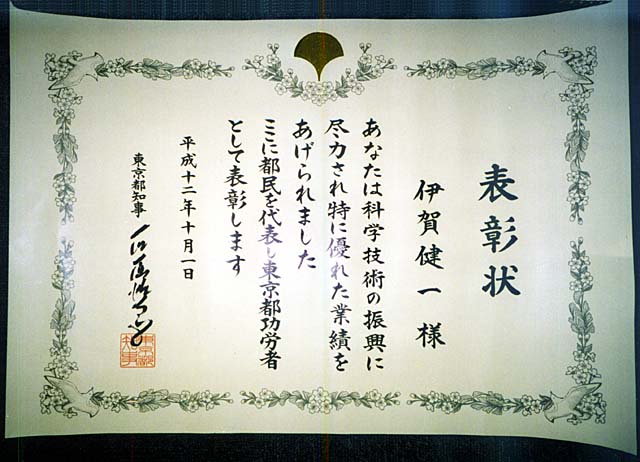 表彰状
伊賀健一様
あなたは科学技術の振興に
尽力され特に優れた業績を
あげられました
ここに都民を代表し東京都功労者
として表彰します
平成十二年十月一日
東京都知事 石原慎太郎
東京都知事